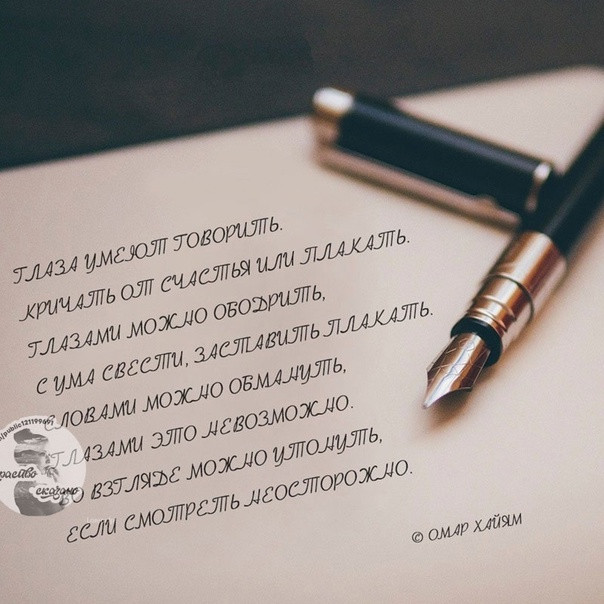 ГЛАЗА УМЕЮТ ГОВОРИТЬ.
КРИЧАТЬ ОТ СЧАСТЬЯ ИЛИ ПЛАКАТЬ.
ГЛАЗАМИ МОЖНО ОБОДРИТЬ,
С УМА СВЕСТИ, ЗАСТАВИТЬ ПЛАКАТЬ.
СЛОВАМИ МОЖНО ОБМАНУТЬ,
ГЛАЗАМИ ЭТО НЕВОЗМОЖНО.
ВО ВЗГЛЯДЕ МОЖНО УТОНУТЬ,
ЕСЛИ СМОТРЕТЬ НЕОСТОРОЖНО.
© ОМАР ХАЙЯМ
сказано